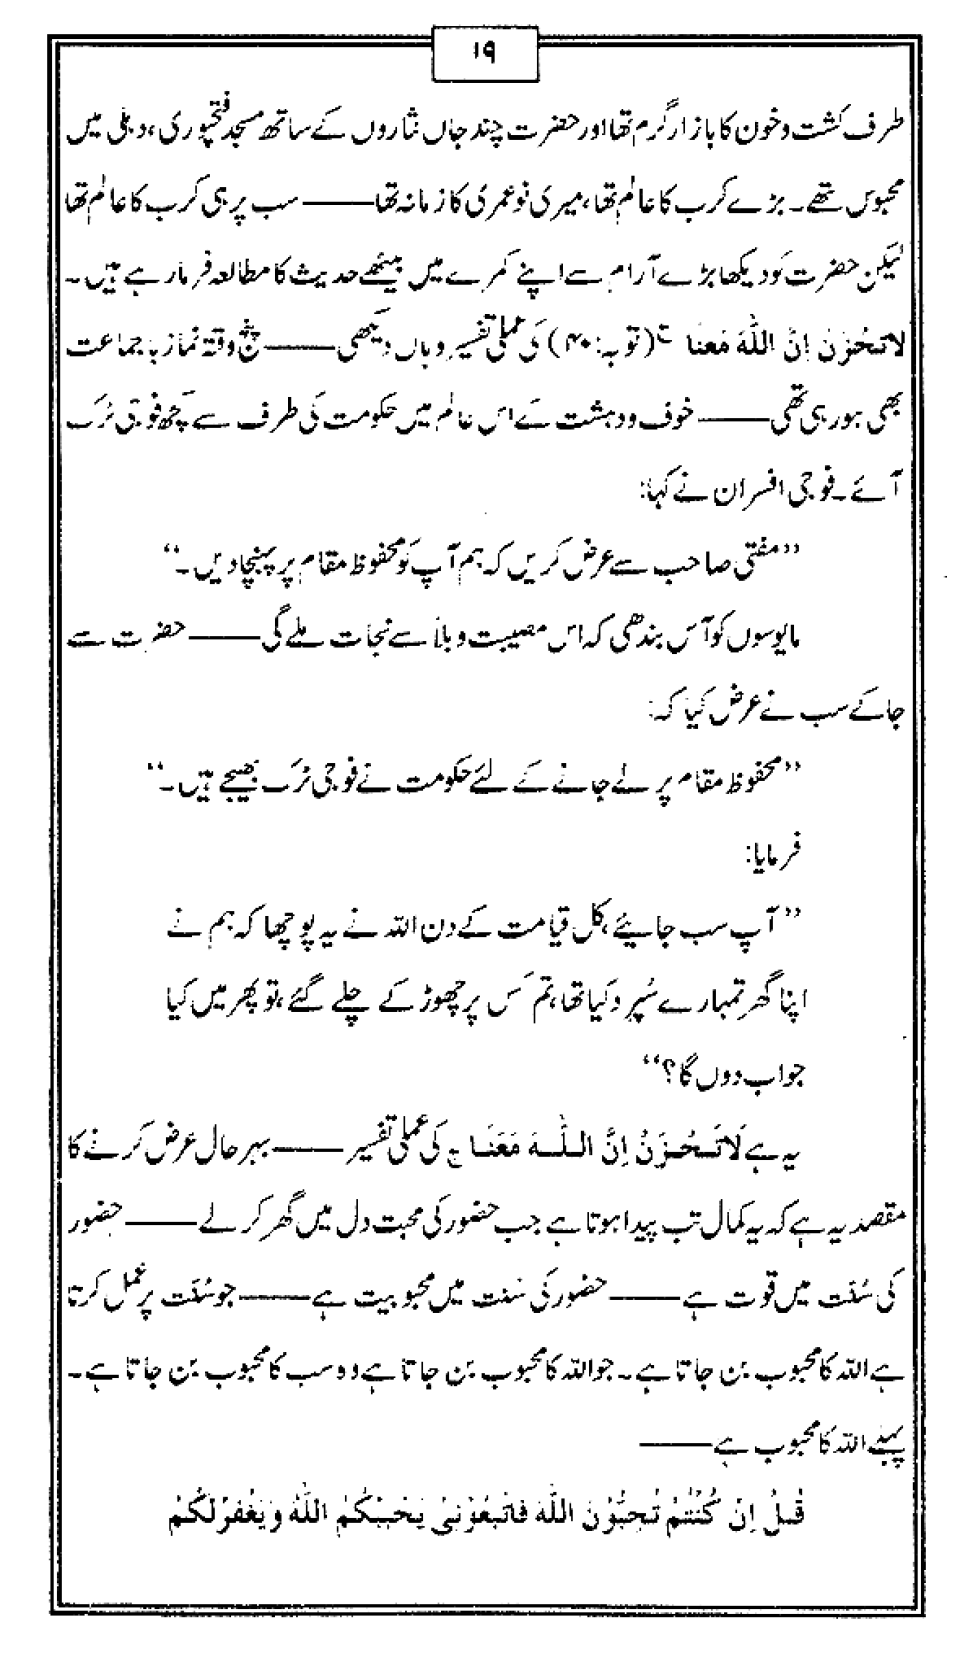 ۱۹
طرف کشت و خون کا بازار گرم تھا اور حضرت چند جاں نثاروں کے ساتھ مسجد فتحپوری، دہلی میں
محبوس تھے۔ بڑے کرب کا عالم تھا، میری نوعمری کا زمانہ تھا—— سب پر ہی کرب کا عالم تھا
لیکن حضرت کو دیکھا بڑے آرام سے اپنے کمرے میں بیٹھے حدیث کا مطالعہ فرمارہے ہیں۔
لاتَحْزَنْ اِنَّ اللّٰهَ مَعَنَا ج (توبہ: ۴۰) کی عملی تفسیر وہاں دیکھی—— پنج وقتہ نماز باجماعت
بھی ہورہی تھی—— خوف ودہشت کے اس عالم میں حکومت کی طرف سے کچھ فوجی ٹرک
آئے۔ فوجی افسران نے کہا:
”مفتی صاحب سے عرض کریں کہ ہم آپ کو محفوظ مقام پر پہنچادیں۔“
مایوسوں کو آس بندھی کہ اس مصیبت وبلا سے نجات ملے گی—— حضرت سے
جاکے سب نے عرض کیا کہ:
”محفوظ مقام پر لے جانے کے لئے حکومت نے فوجی ٹرک بھیجے ہیں۔“
فرمایا:
”آپ سب جایئے، کل قیامت کے دن اللہ نے یہ پوچھا کہ ہم نے
اپنا گھر تمہارے سُپرد کیا تھا، تم کس پر چھوڑ کے چلے گئے، تو پھر میں کیا
جواب دوں گا؟“
یہ ہے لَاتَحْزَنْ اِنَّ اللّٰهَ مَعَنَا ج کی عملی تفسیر—— بہرحال عرض کرنے کا
مقصد یہ ہے کہ یہ کمال تب پیدا ہوتا ہے جب حضور کی محبت دل میں گھر کرلے—— حضور
کی سُنّت میں قوت ہے—— حضور کی سنت میں محبوبیت ہے—— جو سُنّت پر عمل کرتا
ہے اللہ کا محبوب بن جاتا ہے۔ جو اللہ کا محبوب بن جاتا ہے وہ سب کا محبوب بن جاتا ہے۔
پہلے اللہ کا محبوب ہے——
قُلْ اِنْ كُنْتُمْ تُحِبُّوْنَ اللّٰهَ فَاتَّبِعُوْنِیْ یُحْبِبْكُمُ اللّٰهُ وَیَغْفِرْلَكُمْ